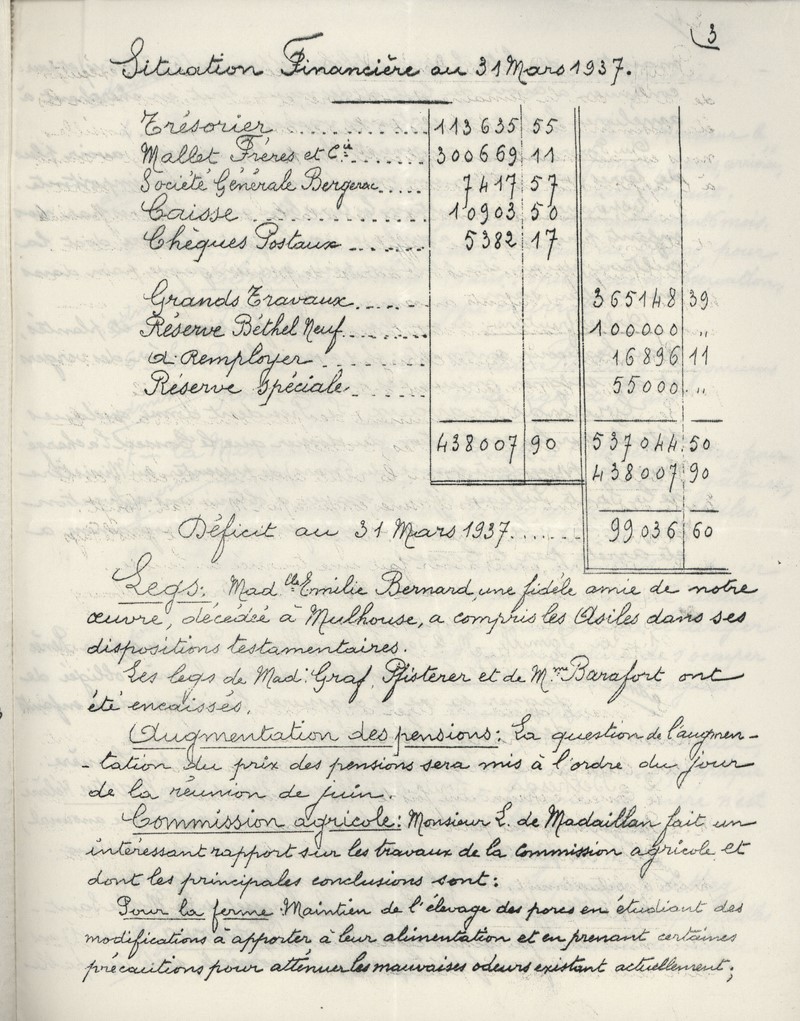 3
Situation Financière au 31 Mars 1937.
Trésorier .............. 113635 55
Mallet Frères et Cie ........ 300669 11
Société Générale Bergerac ..... 7417 57
Caisse .............. 10903 50
Chèques Postaux ........ 5382 17
Grands Travaux ........ 365148 39
Réserve Béthel Neuf ........ 100000 "
A Remployer .......... 16896 11
Réserve Spéciale ........ 55000 "
438007 90 537044 50
438007 90
Déficit au 31 Mars 1937 ....... 99036 60
Legs: Mad.lle Emilie Bernard, une fidèle amie de notre
œuvre, décédée à Mulhouse, a compris les Asiles dans ses
dispositions testamentaires.
Les legs de Mad: Graf. Pfisterer et de Mme Barafort ont
été encaissés.
Augmentation des pensions: La question de l'augmen-
-tation du prix des pensions sera mis à l'ordre du jour
de la réunion de juin.
Commission agricole: Monsieur L. de Madaillan fait un
intéressant rapport sur les travaux de la commission agricole et
dont les principales conclusions sont:
Pour la ferme: Maintien de l'élevage des porcs en étudiant des
modifications à apporter à leur alimentation et en prenant certaines
précautions pour atténuer les mauvaises odeurs existant actuellement;